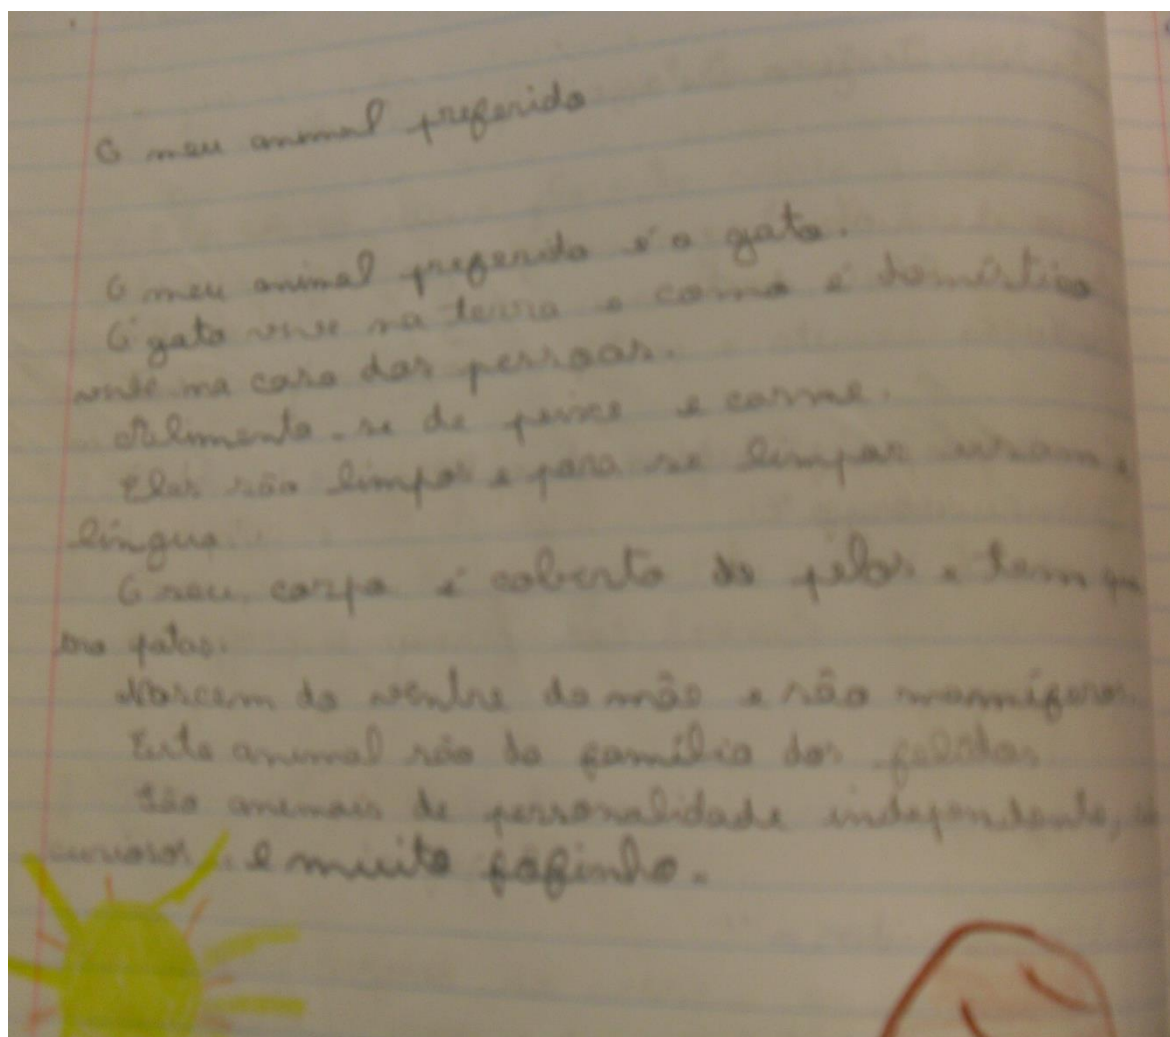 O meu animal preferido
O meu animal preferido é o gato.
O gato vive na terra e como é doméstico
vive na casa das pessoas.
Alimenta-se de peixe e carne.
Eles são limpos e para se limpar usam a
língua.
O seu corpo é coberto de pêlos e tem qua
tro patas.
Nascem do ventre da mãe e são mamíferos.
Este animal são da família dos felídos
São animais de personalidade independente,
curiosos e muito fofinho.